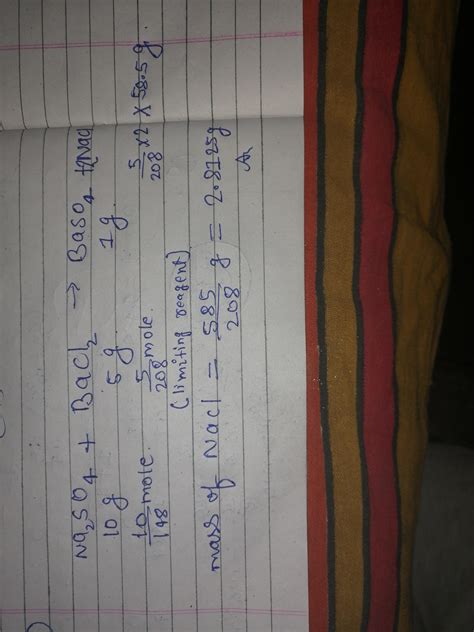 Na₂SO₄ + BaCl₂ → BaSO₄ + 2NaCl
10 g 5 g 1 g
10/148 mole. 5/208 mole. 5/208 × 2 × 58.5 g
(limiting reagent)
mass of NaCl = 585/208 g = 2.8125g